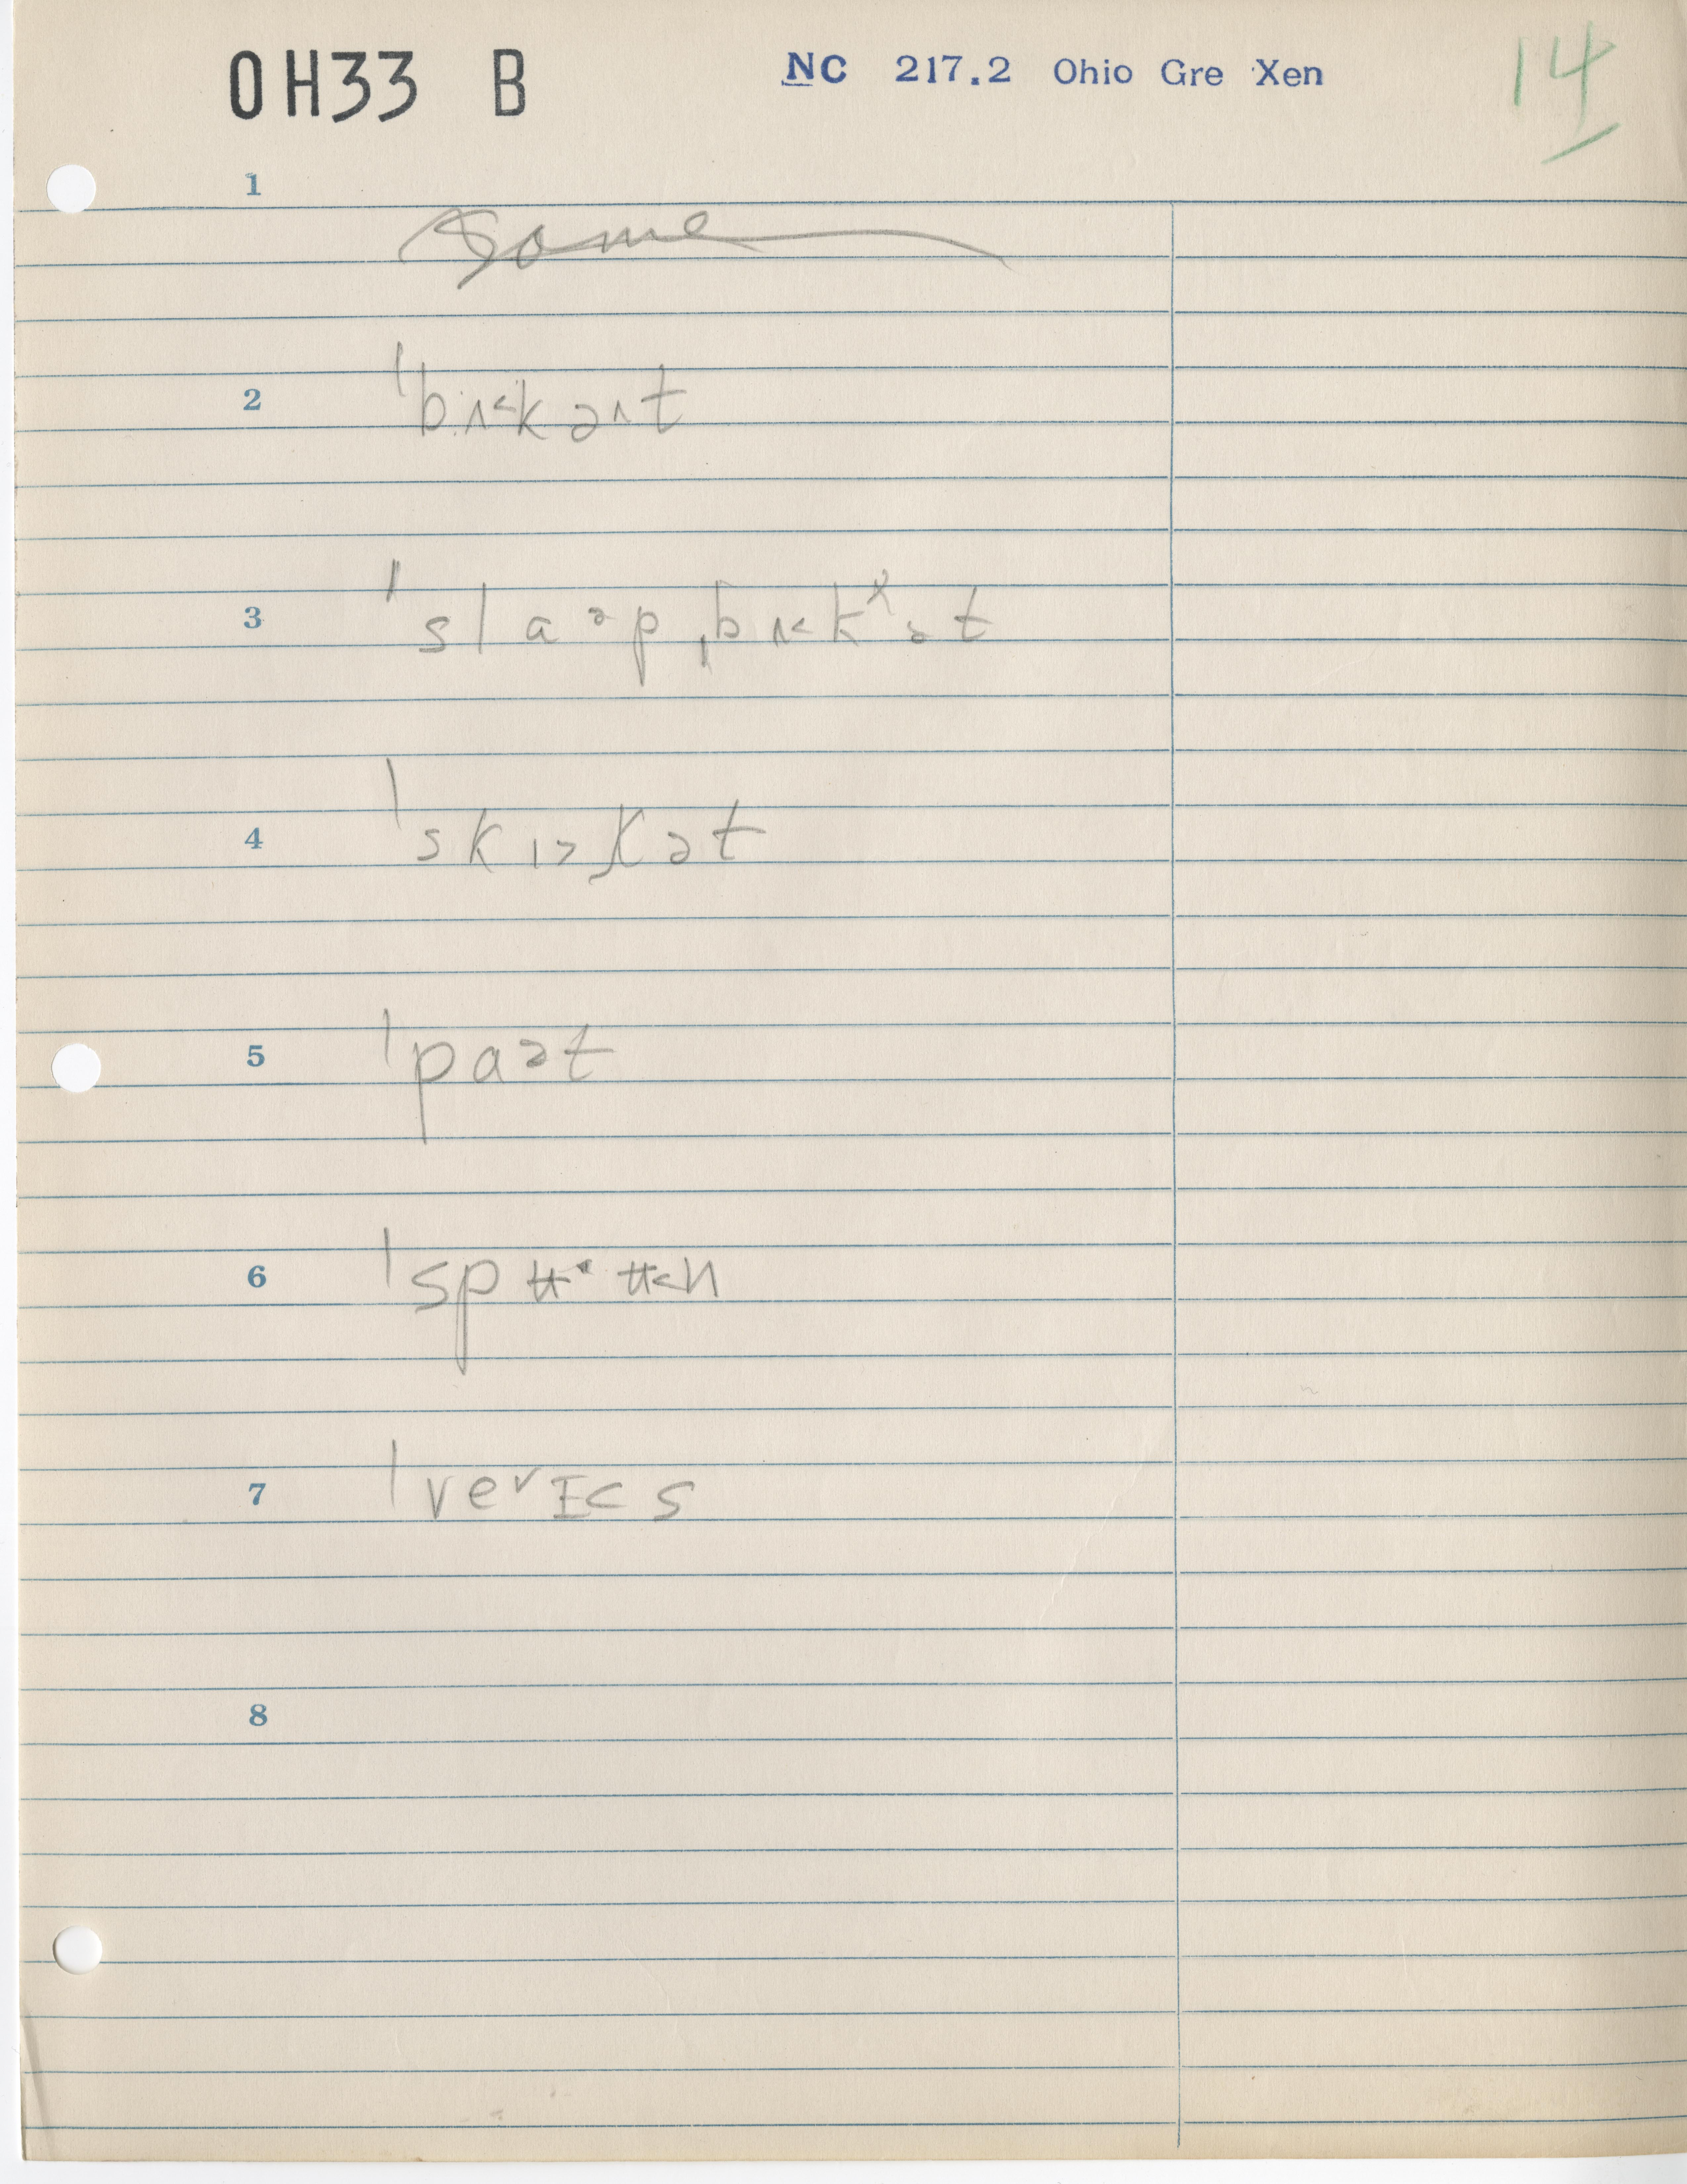 OH33 B NC 217.2 Ohio Gre Xen 14
1
Some
2 ˈbʌ˂kəʌt
3 ˈslaəpˌbʌ˂kˣət
4 ˈskɪ˃kət
5 ˈpaət
6
7 ˈveᵛɪ˂s
8